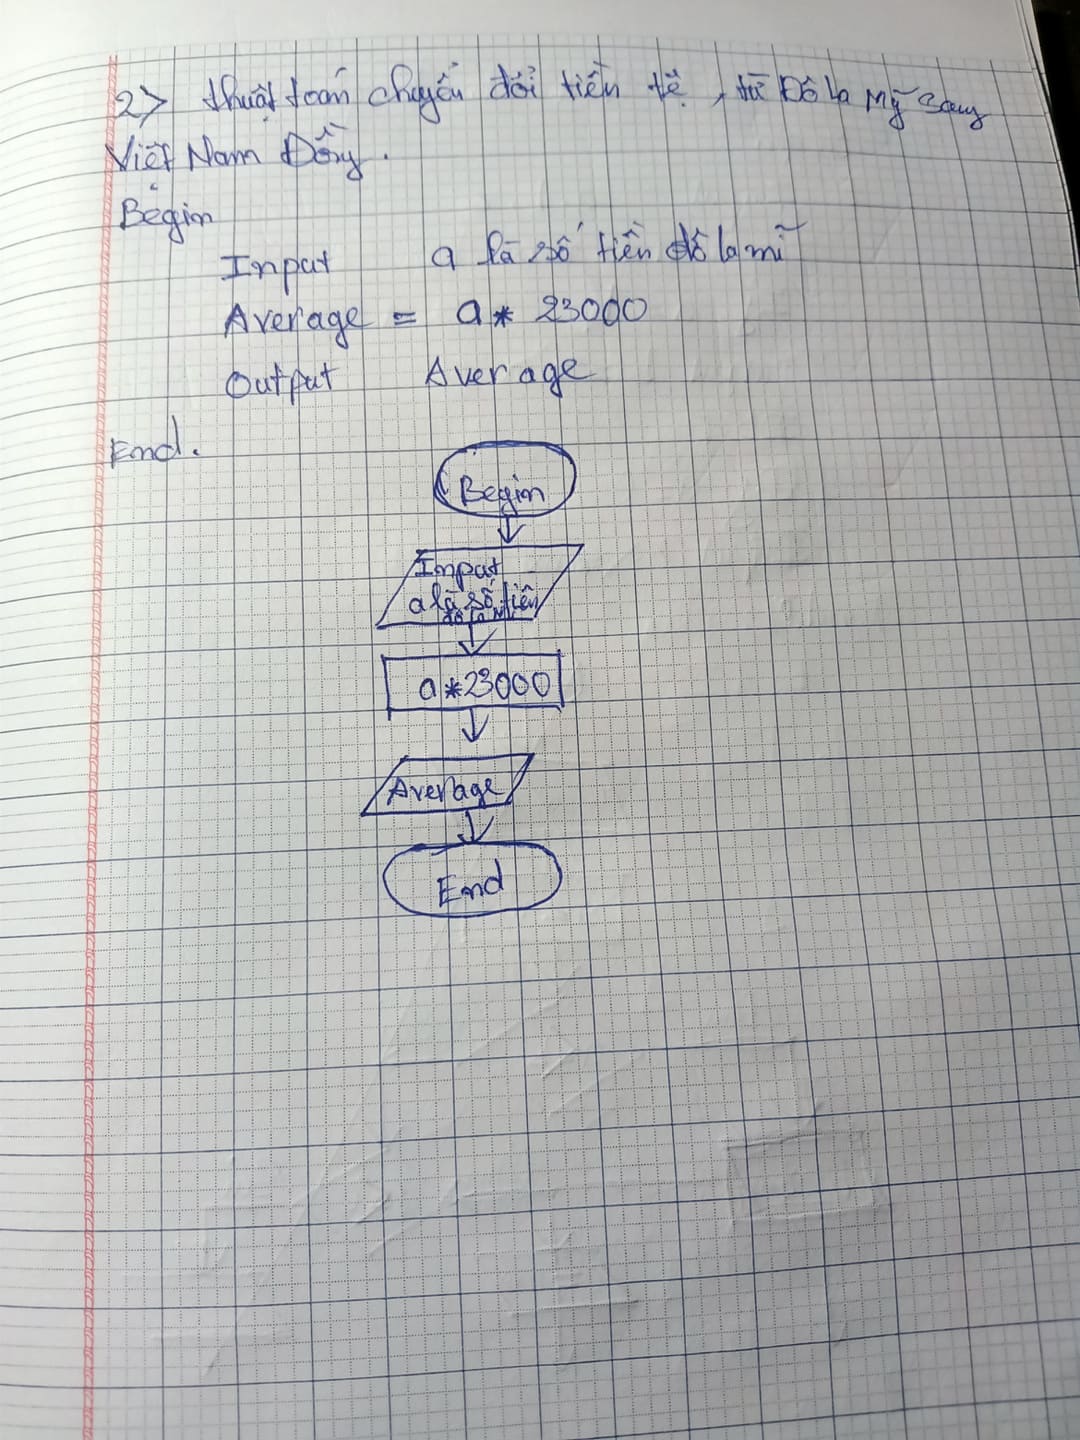 2> thuật toán chuyển đổi tiền tệ, từ Đô la Mỹ sang
Việt Nam Đồng.
Begin
Input a là số tiền đô la mĩ
Average = a * 23000
Output Average
End.
Begin
Input
a là số tiền
đô la mĩ
a*23000
Average
End